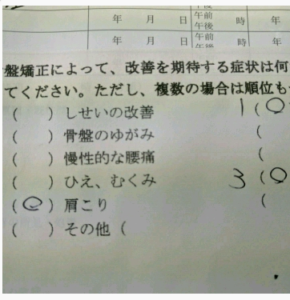 年 月 日 午前 時
午後
年 月 日 午前 時
午後
盤矯正によって、改善を期待する症状は何
てください。ただし、複数の場合は順位も
( ) しせいの改善 1 (○
( ) 骨盤のゆがみ (
( ) 慢性的な腰痛 (
( ) ひえ、むくみ 3 (○
(○) 肩こり (
( ) その他 (